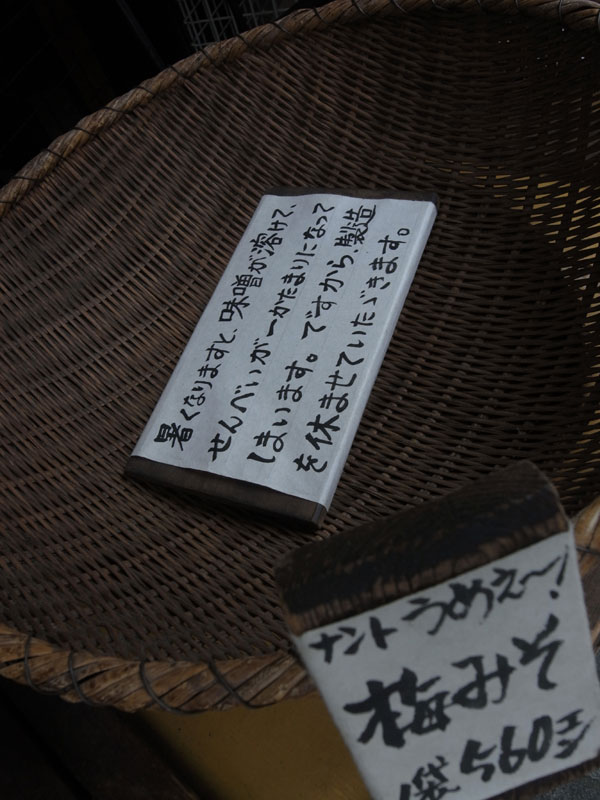 暑くなりますと、味噌が溶けて、
せんべいが一かたまりになって
しまいます。ですから、製造
を休ませていただきます。
ナント うめえ〜!
梅みそ
袋560エン